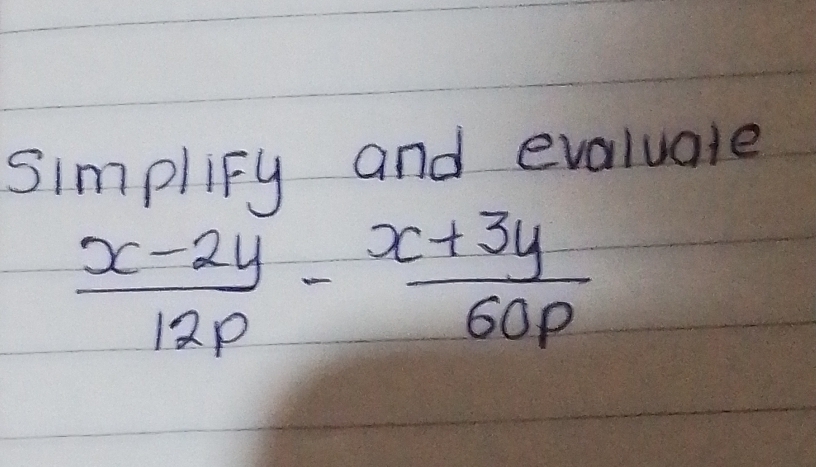 Simplify and evaluate
x-2y/12p - x+3y/60p